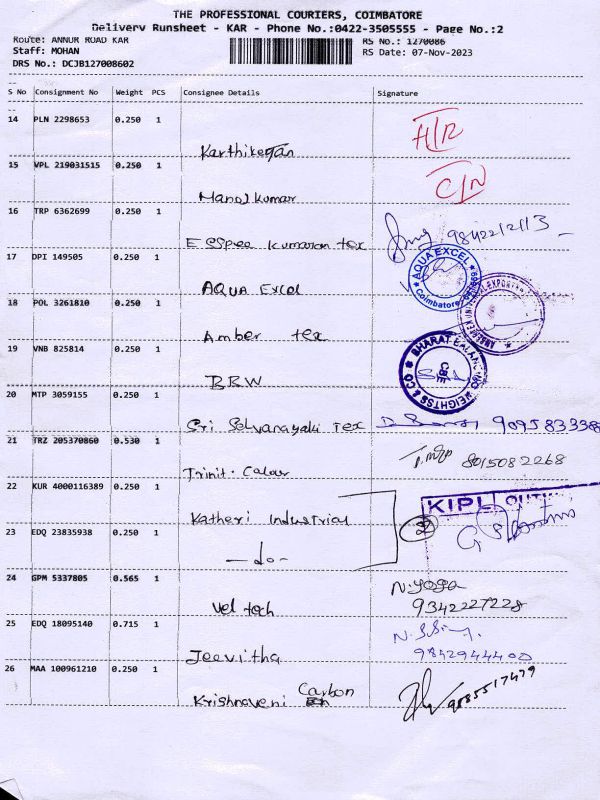 THE PROFESSIONAL COURIERS, COIMBATORE
Delivery Runsheet - KAR - Phone No.:0422-3505555 - Page No.:2
Route: ANNUR ROAD KAR
RS No.: 1270086
Staff: MOHAN
RS Date: 07-Nov-2023
DRS No.: DCJB127008602
S No Consignment No Weight PCS Consignee Details Signature
14 PLN 2298653 0.250 1
Karthikeyan
15 VPL 219031515 0.250 1
Manoj kumar
16 TRP 6362699 0.250 1
kumaran tex 9842212113
17 DPI 149505 0.250 1
AQUA EXCEL
Coimbatore
AQUA Excel
18 POL 3261810 0.250 1
Amber tex
19 VNB 825814 0.250 1
BHARAT BALANCING WEIGHTSS & CO
CBE
BBW
20 MTP 3059155 0.250 1
Sri Selvanayaki Tex
21 TRZ 205370860 0.530 1
8015082268
Trinit. Calour
22 KUR 4000116389 0.250 1
KIPL
Katheri Industrial
23 EDQ 23835938 0.250 1
-do-
24 GPM 5337805 0.565 1
N.yoga
Vel tech 9342227228
25 EDQ 18095140 0.715 1
Jeevitha 9842944400
26 MAA 100961210 0.250 1
Krishnaveni Carbon